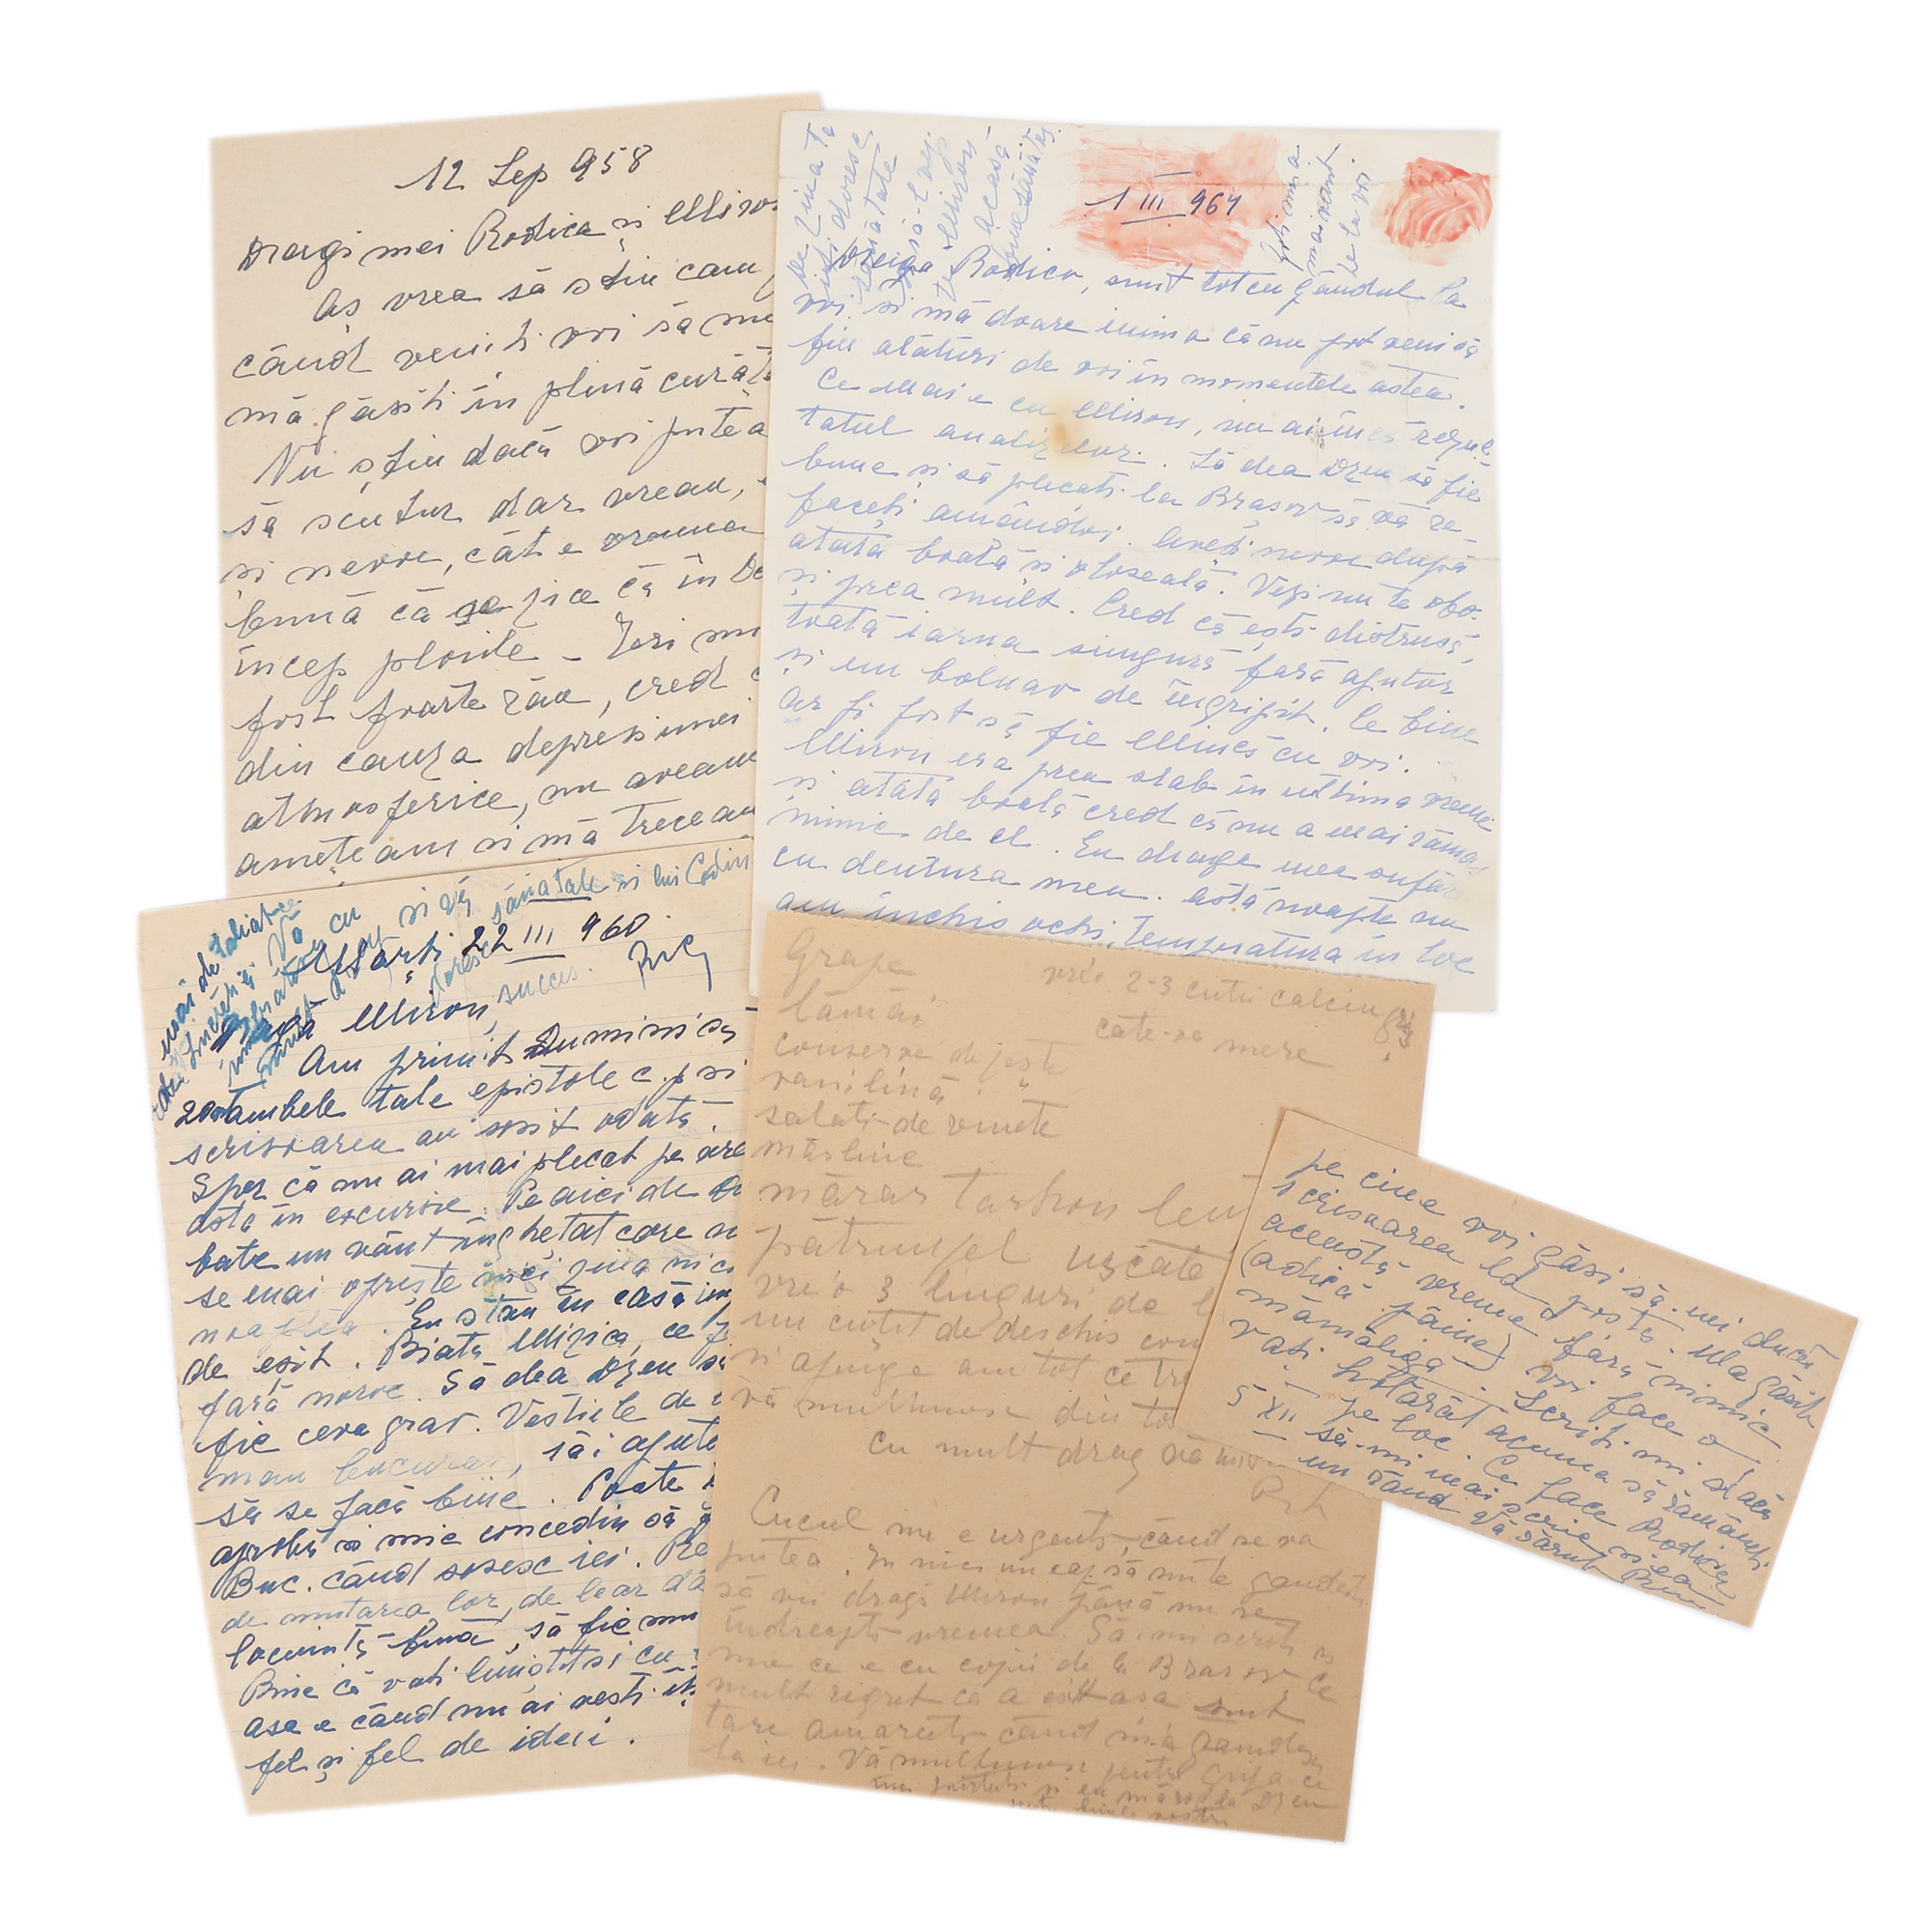 12 Sep 958
Dragi mei Rodica și Miron
Aș vrea să știu cam
când veniți voi să nu
mă găsiți în plină curăț
Nu știu dacă voi putea
să scutur dar vreau,
și nevoe, cât e vremea
bună că se zice că în
încep ploile - Ieri m
fost foarte rău, cred
din cauza depresiunei
atmosferice, nu aveam
amețeam și mă treceau
1 III 964
Draga Rodico, sunt tot cu gândul la
voi și mă doare inima că nu pot veni să
fiu alături de voi în momentele astea.
Ce mai e cu Miron, nu ai încă rezul-
tatul analizelor. Să dea Dzeu să fie
bune și să plecați la Brașov să vă re-
faceți amândoi. Aveți nevoe după
atâta boală și oboseală. Vezi nu te obo-
și prea mult. Cred că ești distrusă,
toată iarna singură fără ajutor
și un bolnav de îngrijit. Ce bine
ar fi fost să fie cu voi.
Miron era prea slab în ultima vreme
și atâta boală cred că nu a mai rămas
nimic de el. Eu draga mea sufăr
cu dentura mea. Astă noapte nu
am închis ochi, temperatura în loc
sănătate și lui Codin
Marți 22 III 960
succes.
Draga Miron,
Am primit Duminică
20 ambele tale epistole c.p și
scrisoarea au sosit odată.
Sper că nu ai mai plecat pe vre
asta în excursie. Pe aici de
bate un vânt înghețat care n
se mai oprește nici ziua nici
noaptea. Eu stau în casă
de eșit. Biata Mizica, ce
fără noroc. Să dea Dzeu să
fie ceva grav. Veștile de
mau bucurat, să-i ajute
să se facă bine. Poate
aprobă și mie concediu să
Buc. când sosesc iei. Re
de mutarea lor, de lear dă
locuință bună, să fie mu
Bine că vați liniștit și cu
așa e când nu ai vești îți
fel și fel de idei.
Grape
lămâi
conserve de pește
vanilină
salată de vinete
măsline
vreo 2-3 cutii calciu
câte-va mere
mărar tarhon leu
pătrunjel uscate
vre'o 3 linguri de l
un cuțit de deschis con
și ajunge am tot ce tre
vă mulțumesc din tot
cu mult drag vă
Cucul nu e urgent, când se va
putea. În nici un caz să nu te gândești
să vii dragă Miron până nu se
îndreaptă vremea. Să-mi scrii și
mie ce e cu copii de la Brașov. Ce
mult regret că a eșit așa sunt
tare amărâtă când mă gândesc
la iei. Vă mulțumesc pentru grija ce
mi purtați și eu mă rog la Dzeu
pe cine voi găsi să-mi ducă
scrisoarea la poștă. Mla găsit
această vreme fără nimic
(adică pâine) voi face o
mămăligă. Scriti-mi dacă
vați hotărât acuma să rămâneți
pe loc. Ce face Rodica
5 XII să-mi mai scrie și ea
un rând Vă sărut